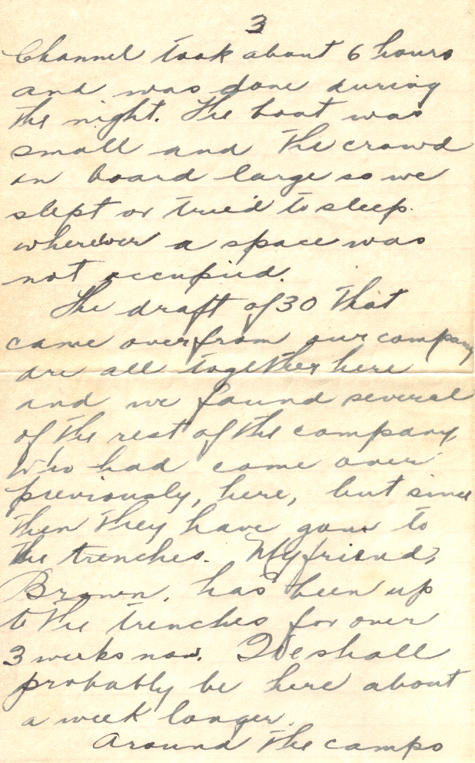 3
Channel took about 6 hours
and was done during
the night. The boat was
small and the crowd
on board large so we
slept or tried to sleep
wherever a space was
not occupied.
The draft of 30 that
came over from our company
are all together here
and we found several
of the rest of the company
who had come over
previously, here, but since
then they have gone to
the trenches. My friend,
Brown, has been up
to the trenches for over
3 weeks now. We shall
probably be here about
a week longer.
Around the camps